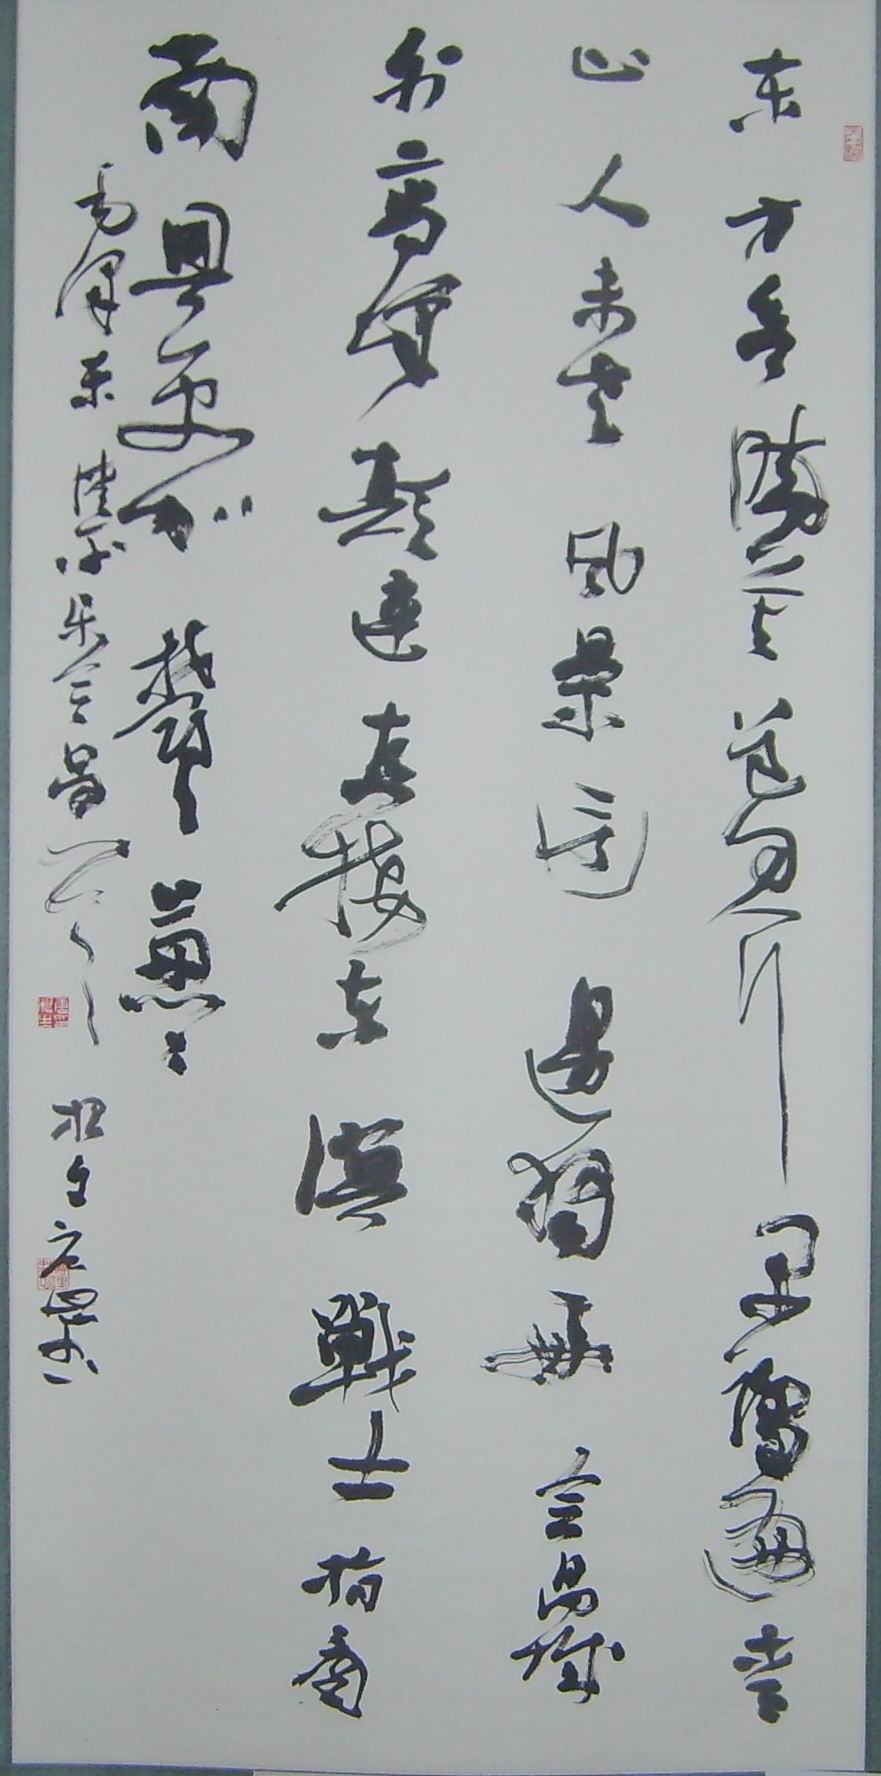 东方欲曉莫道君行早踏遍青
山人未老风景這邊獨好会昌城
外高峰颠連直接东溟戰士指看
南粤更加鬱々葱々
毛泽东清平乐会昌